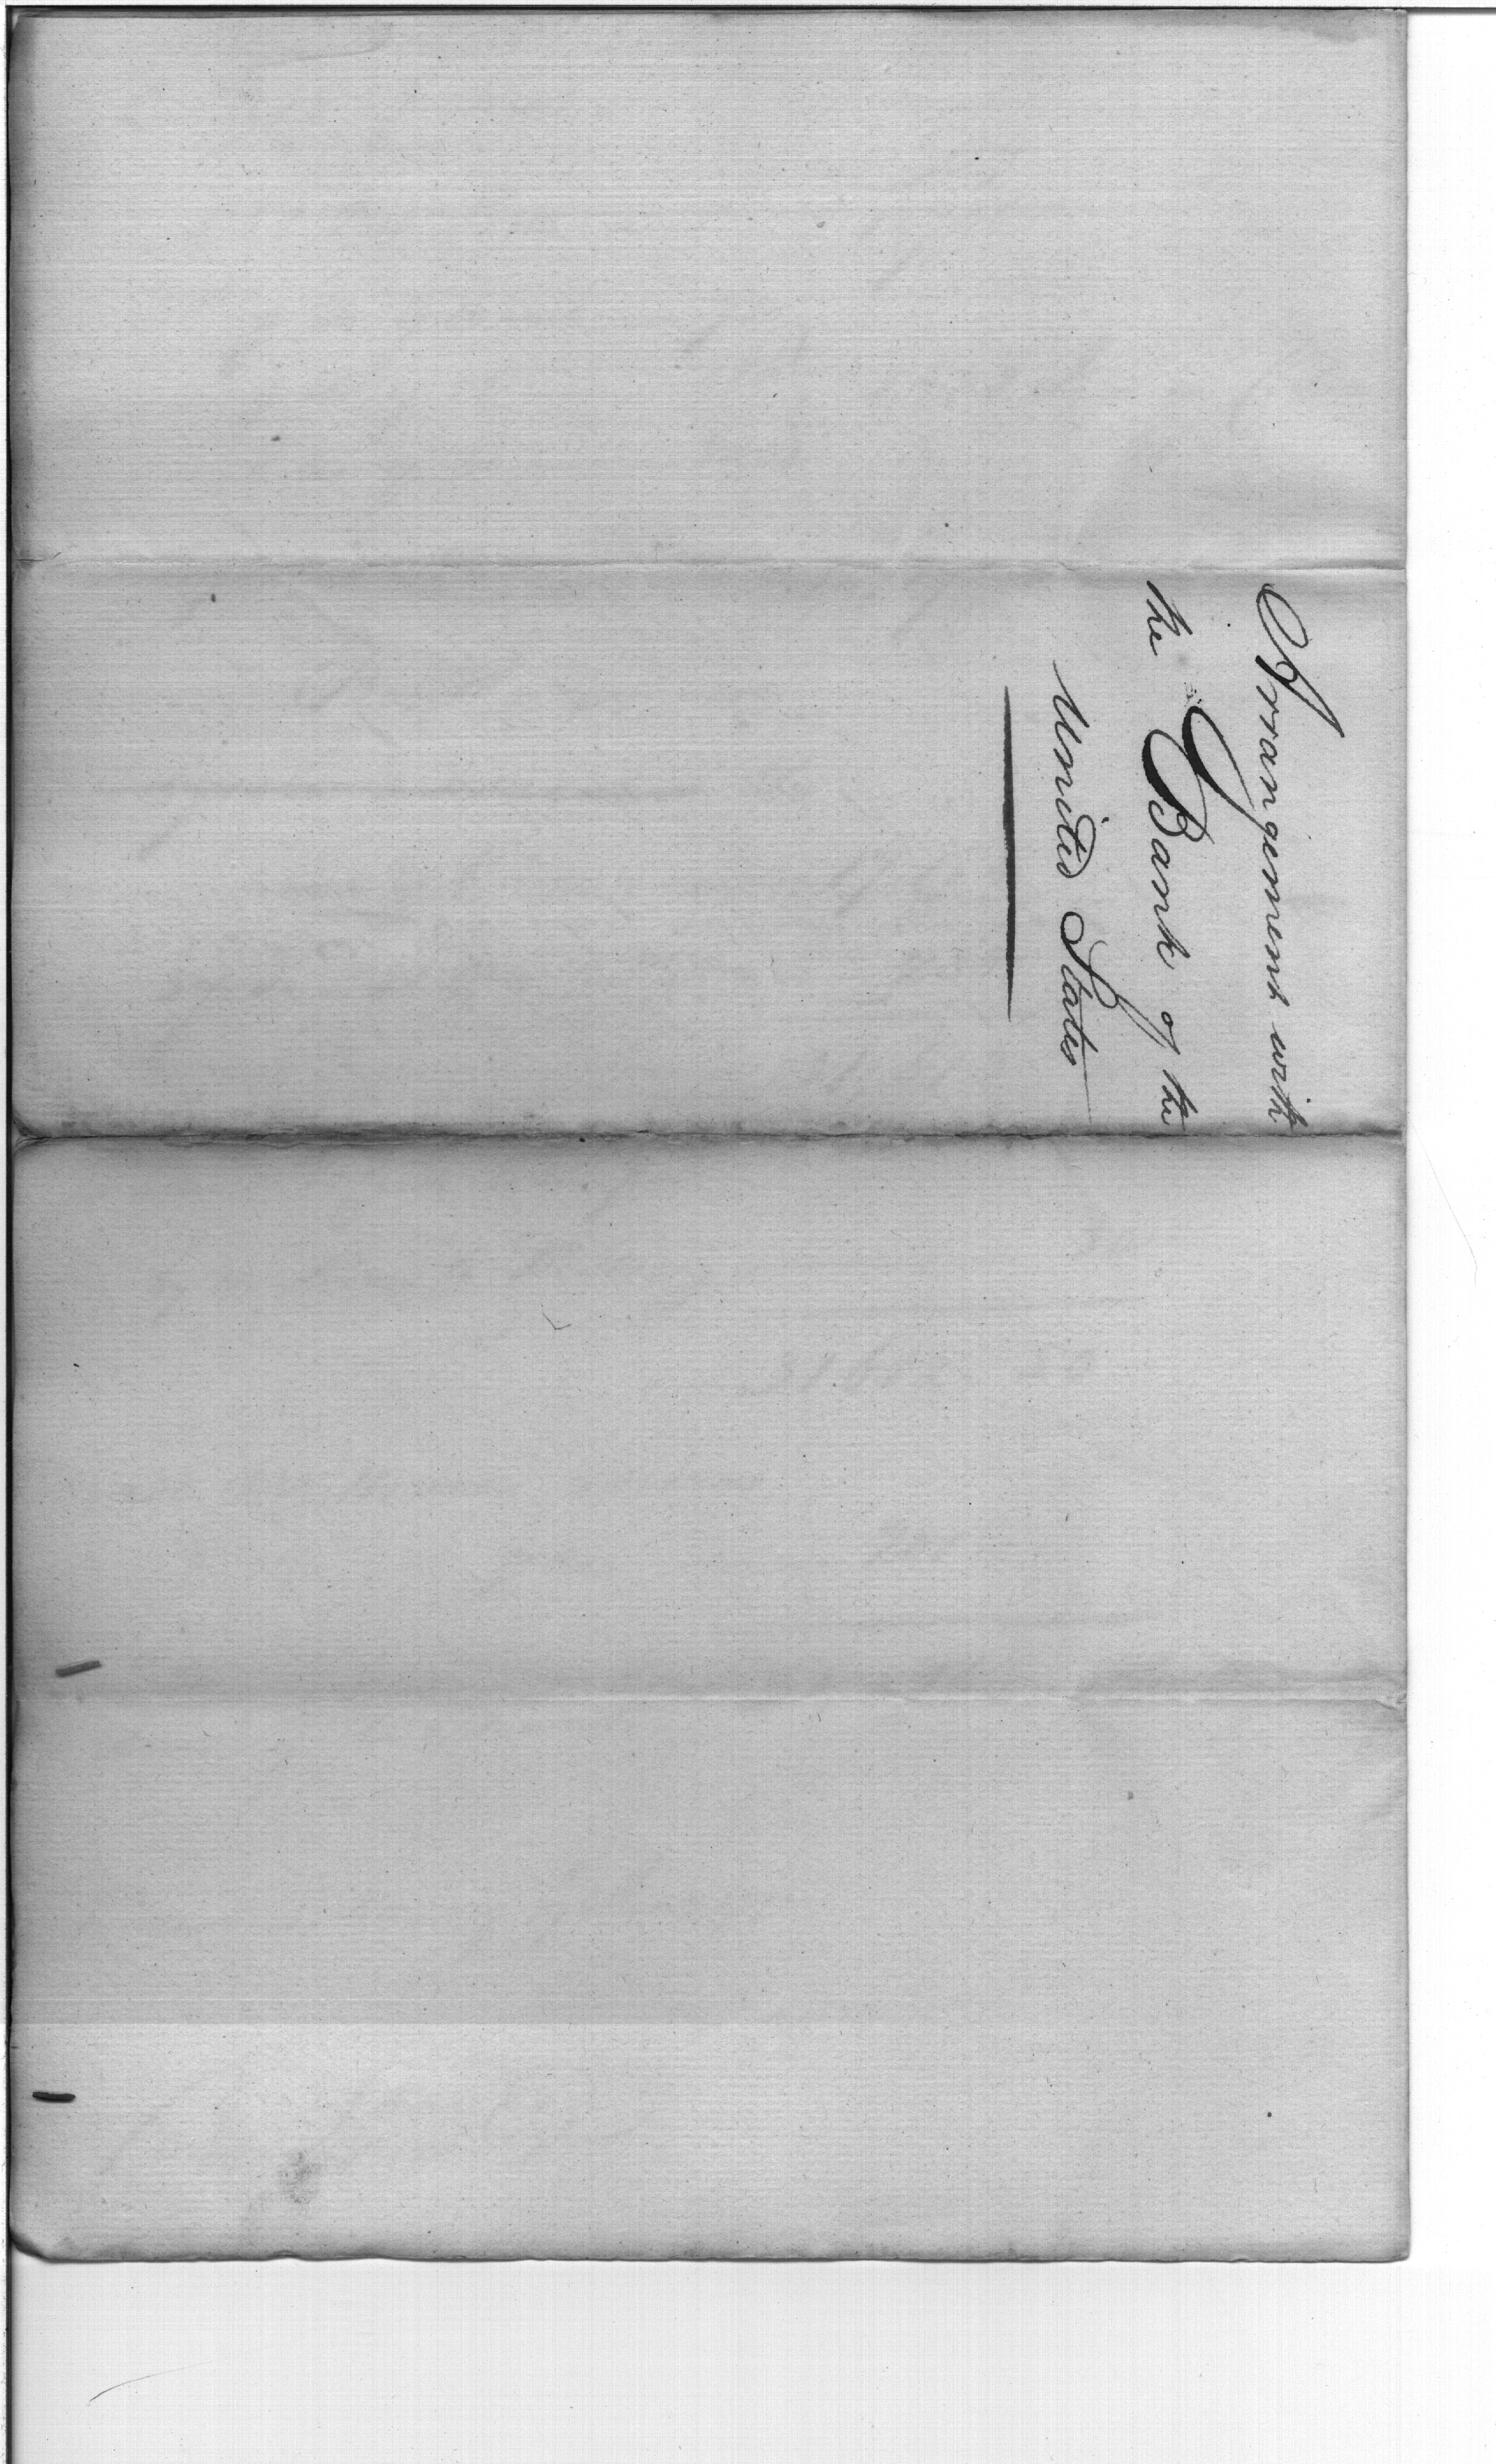 Arrangement with
the Bank of the
United States